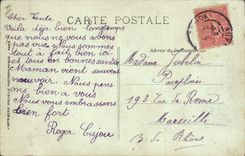 CARTE POSTALE
Cher Tante
Voila déja bien longtemps
que nous ne vous avons
pas vue Nous sommes
tout a fait bien ici
et tous en bonne santé
Maman vient souvent
nous voir. Nous pensons
bien a vous
Nous vous embrassons
bien fort.
Roger. Lujour
Madame Jubelin
Parapluies
193 Rue de Rome
Marseille
B. du Rhône